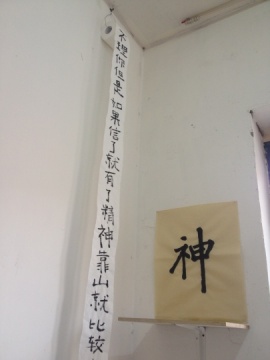 不理你但是如果信了就有了精神靠山就比较
神